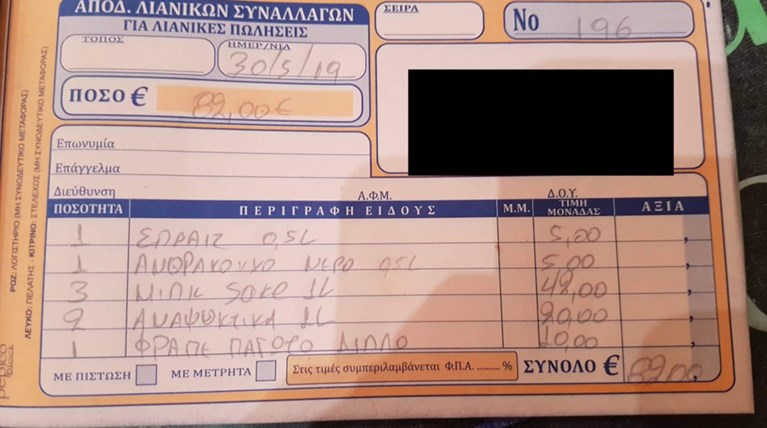 ΑΠΟΔ. ΛΙΑΝΙΚΩΝ ΣΥΝΑΛΛΑΓΩΝ
ΓΙΑ ΛΙΑΝΙΚΕΣ ΠΩΛΗΣΕΙΣ
ΣΕΙΡΑ
No 196
ΤΟΠΟΣ
ΗΜΕΡ/ΝΙΑ
30/5/19
ΠΟΣΟ € 82,00€
Επωνυμία
Επάγγελμα
Διεύθυνση Α.Φ.Μ. Δ.Ο.Υ.
ΠΟΣΟΤΗΤΑ ΠΕΡΙΓΡΑΦΗ ΕΙΔΟΥΣ Μ.Μ. ΤΙΜΗ ΜΟΝΑΔΑΣ ΑΞΙΑ
1 ΣΠΡΑΙΤ 0,5L 5,00
1 ΑΝΘΡΑΚΟΥΧΟ ΝΕΡΟ 0,5L 5,00
3 ΜΙΛΚ SΕΙΚ 1L 42,00
2 ΑΝΑΨΥΚΤΙΚΑ 1L 20,00
1 ΦΡΑΠΕ ΠΑΓΩΤΟ ΔΙΠΛΟ 10,00
ΜΕ ΠΙΣΤΩΣΗ ΜΕ ΜΕΤΡΗΤΑ Στις τιμές συμπεριλαμβάνεται Φ.Π.Α. .......... % ΣΥΝΟΛΟ € 82,00
ΡΟΖ: ΛΟΓΙΣΤΗΡΙΟ (ΜΗ ΣΥΝΟΔΕΥΤΙΚΟ ΜΕΤΑΦΟΡΑΣ)
ΛΕΥΚΟ: ΠΕΛΑΤΗΣ - ΚΙΤΡΙΝΟ: ΣΤΕΛΕΧΟΣ (ΜΗ ΣΥΝΟΔΕΥΤΙΚΟ ΜΕΤΑΦΟΡΑΣ)